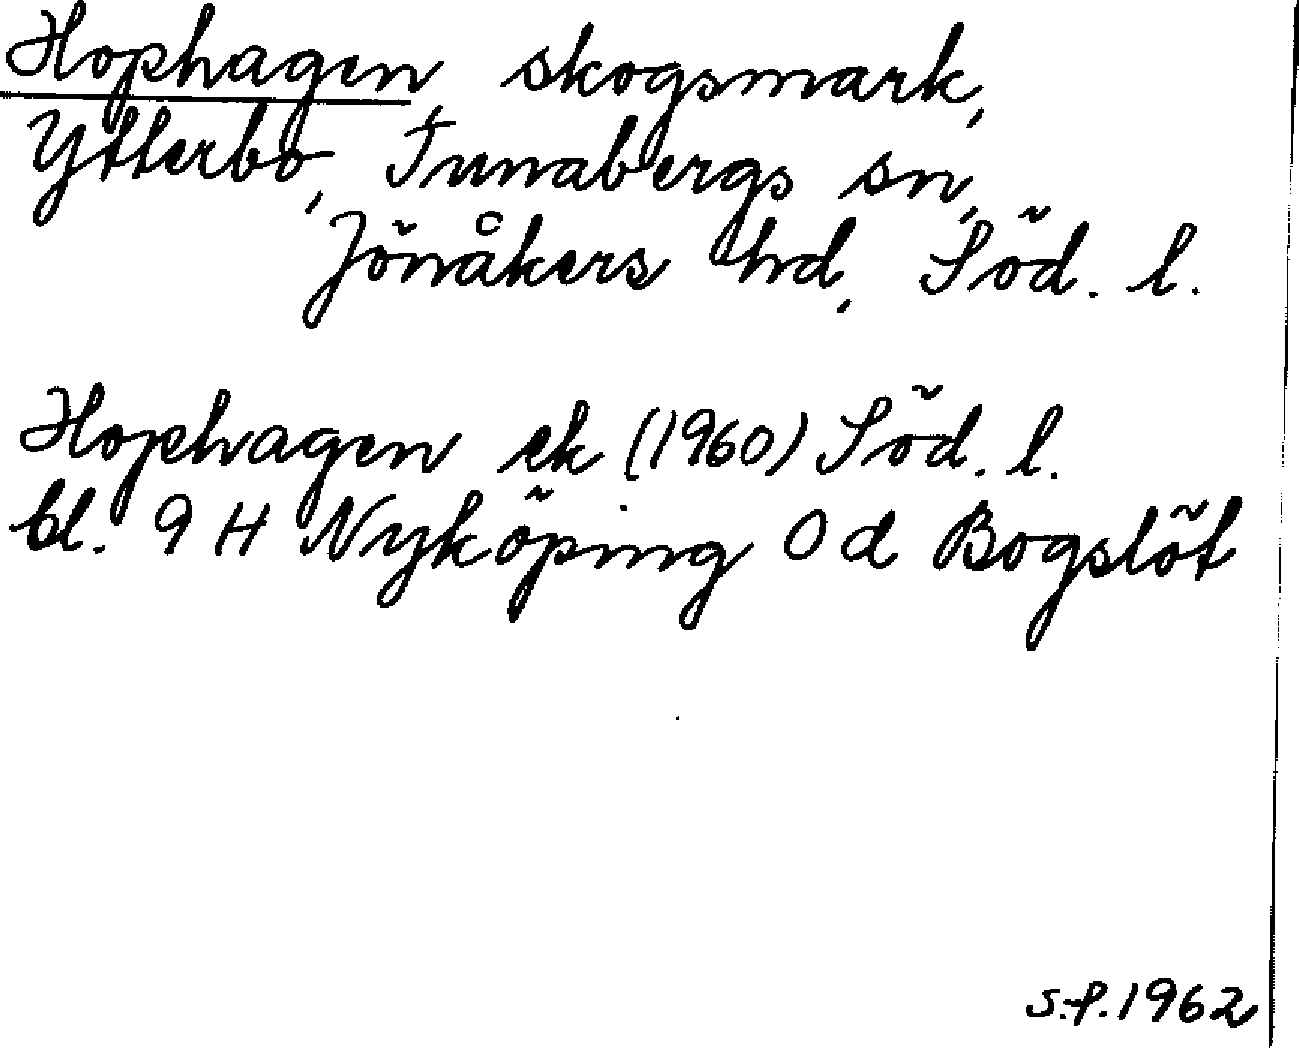 Hophagen, skogsmark,
Ytterbo, Tunabergs sn,
Jönåkers hd, Söd. l.
Hophagen ek (1960) Söd. l.
bl. 9 H Nyköping 0 d Bogslöt
S.f. 1962